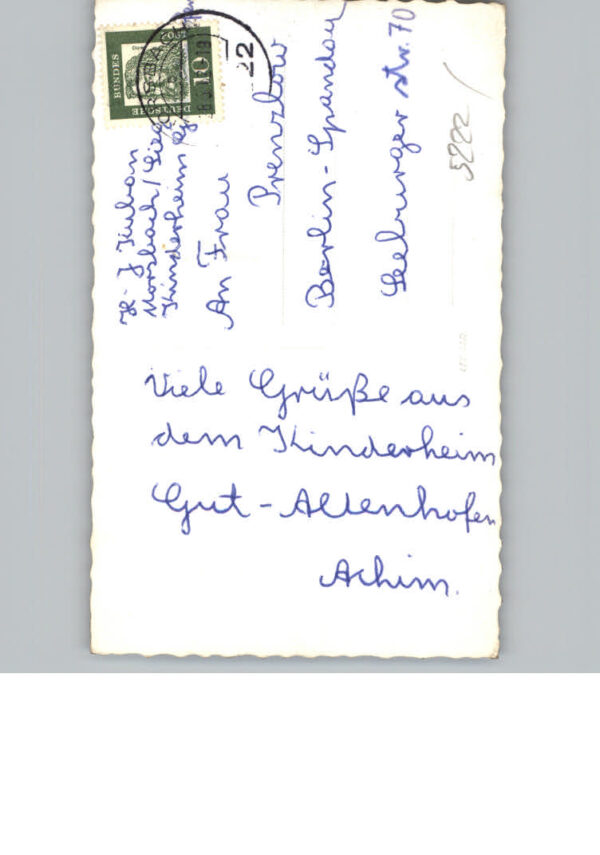 Viele Grüße aus
dem Kinderheim
Gut-Altenhofen
Achim.
H-J Kuban
Morsbach/Sieg
Kinderheim
An Frau
Prenzlow
Berlin-Spandau
Seeburger Str. 70
5222
DEUTSCHE
BUNDES
10
22